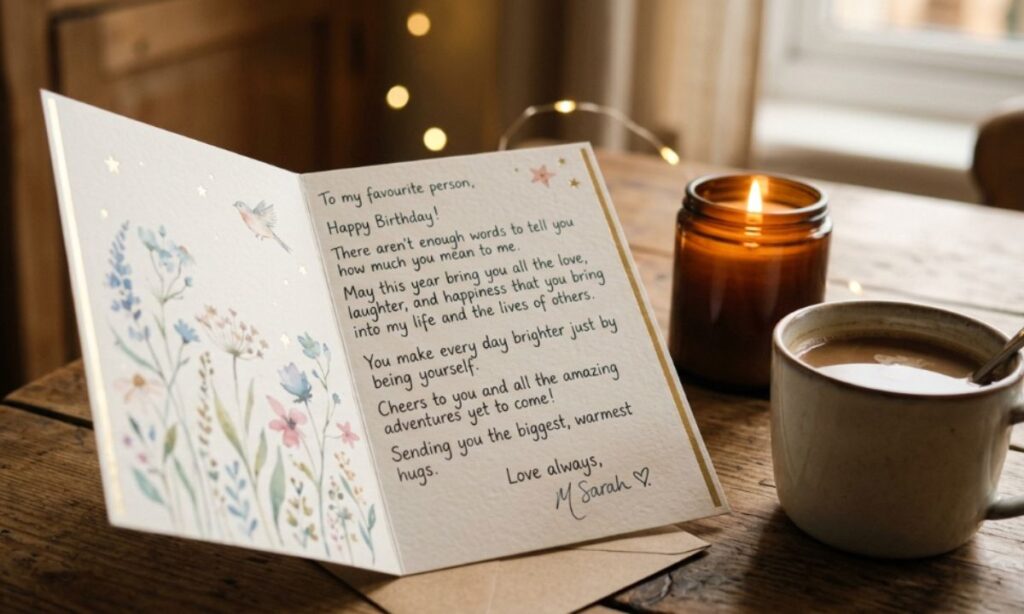 To my favourite person,
Happy Birthday!
There aren't enough words to tell you
how much you mean to me.
May this year bring you all the love,
laughter, and happiness that you bring
into my life and the lives of others.
You make every day brighter just by
being yourself.
Cheers to you and all the amazing
adventures yet to come!
Sending you the biggest, warmest
hugs.
Love always,
M Sarah ♡